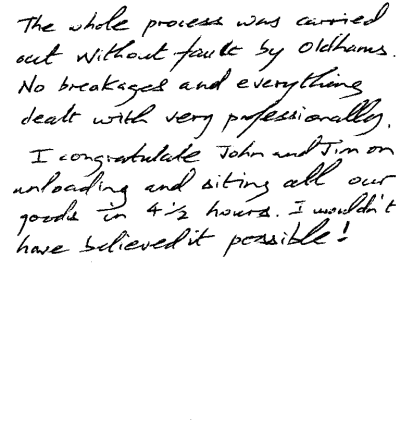 The whole process was carried
out without fault by Oldhams.
No breakages and everything
dealt with very professionally.
I congratulate John and Jim on
unloading and siting all our
goods in 4½ hours. I wouldn't
have believed it possible!